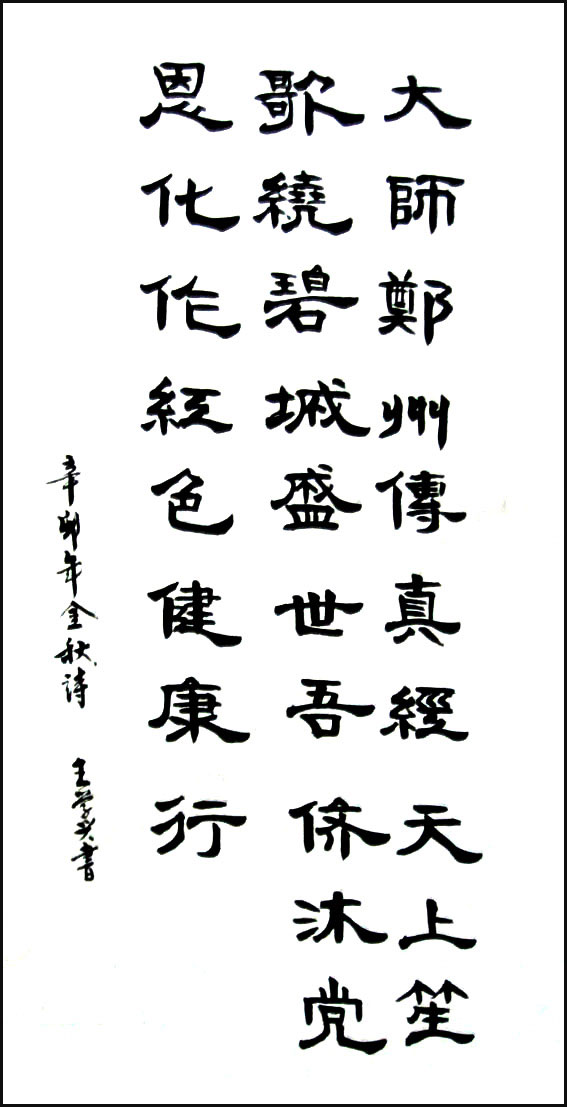 大師鄭州傳真經天上笙
歌繞碧城盛世吾侪沐党
恩化作紅色健康行
辛卯年金秋詩 王学書